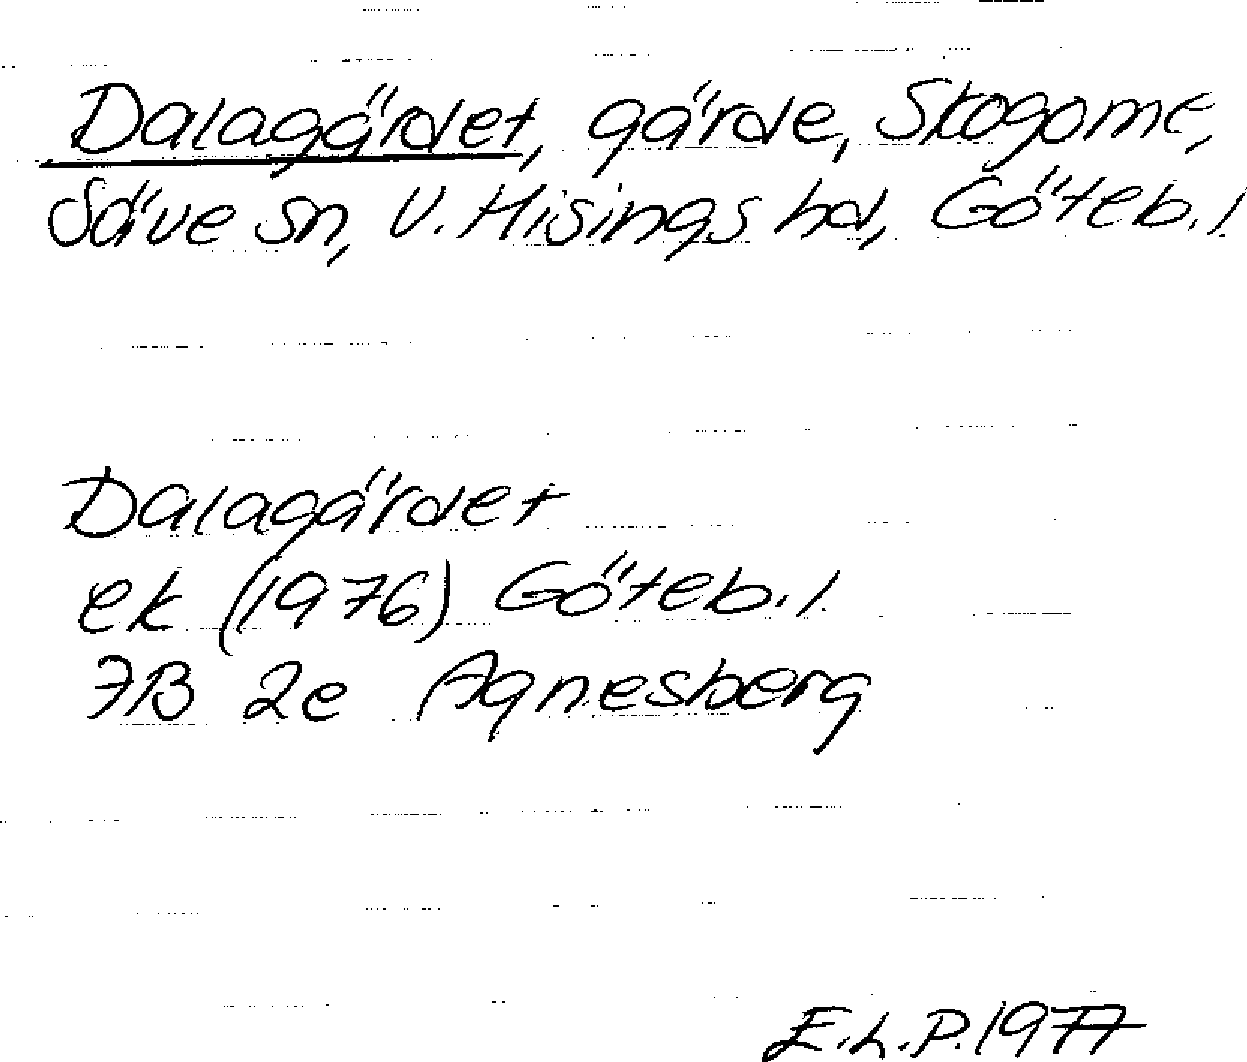 Dalagärdet, gärde, Skogome,
Säve sn, V. Hisings hd, Göteb. l.
Dalagärdet
ek (1976) Göteb. l.
7B 2e Agnesberg
E.L.P. 1977